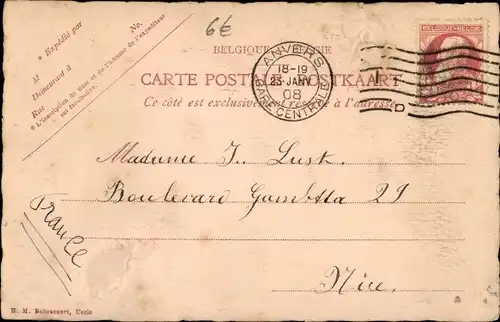 6€
* Expédié par
No.
M
Demeurant à
Rue
* L'inscription du nom et de l'adresse de l'expéditeur
est facultative.
BELGIQUE
CARTE POSTALE POSTKAART
Ce côté est exclusivement réservé à l'adresse
ANVERS
18-19
23 JANV
08
GARE CENTRALE
BELGIQUE·BELGIË
Madame J. Lusk.
Boulevard Gambetta 29
Nice.
France